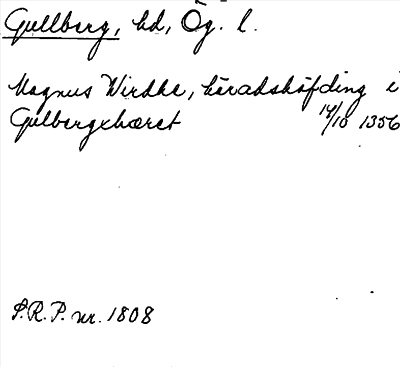 Gullberg, hd, Ög. l.
Magnus Wirdke, häradshöfding i
Gulbergxhæret 14/10 1356
S.R.P. nr. 1808